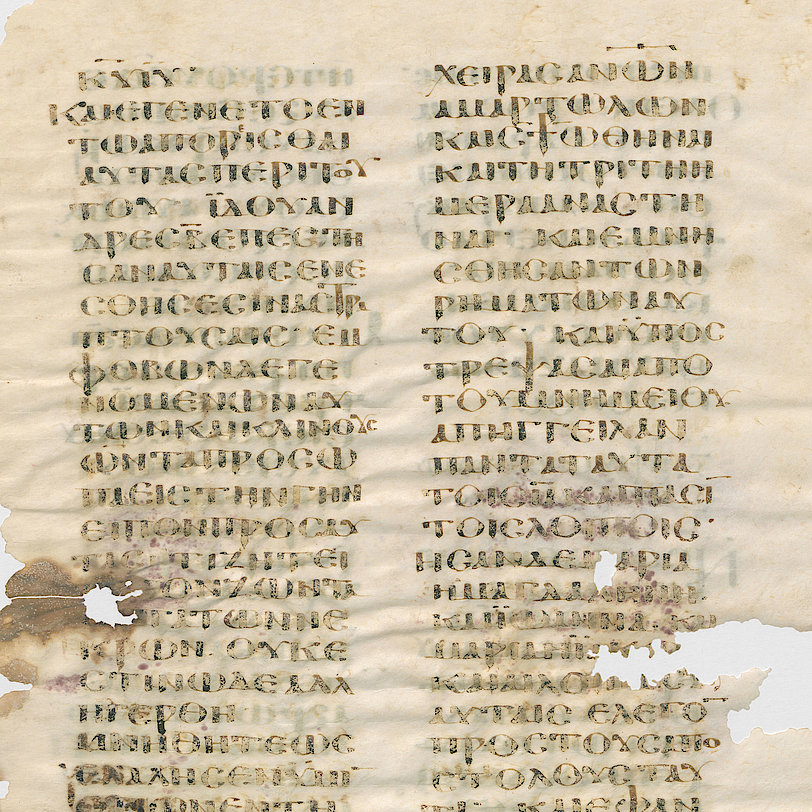 Κ̅Υ̅Ι̅Υ̅·
ΚΑΙΕΓΕΝΕΤΟΕΝ
ΤΩΑΠΟΡΙϹΘΑΙ
ΑΥΤΑϹΠΕΡΙΤΟΥ
ΤΟΥ ΪΔΟΥΑΝ
ΔΡΕϹΒ̅ΕΠΕϹΤΗ
ϹΑΝΑΥΤΑΙϹΕΝΕ
ϹΘΗϹΕϹΙΝΑϹΤΡΑ
ΠΤΟΥϹΑΙϹ· ΕΜ
ΦΟΒΩΝΔΕΓΕ
ΝΟΜΕΝΩΝΑΥ
ΤΩΝΚΑΙΚΛΙΝΟΥϹ
ΩΝΤΑΠΡΟϹΩ
ΠΑΕΙϹΤΗΝΓΗΝ
ΕΙΠΟΝΠΡΟϹΑΥ
ΤΑϹ ΤΙΖΗΤΕΙ
ΟΝΖΩΝΤΑ
ΤΑΤΩΝΝΕ
ΚΡΩΝ· ΟΥΚΕ
ϹΤΙΝΩΔΕΑΛΛ
ΗΓΕΡΘΗ
ΜΝΗϹΘΗΤΕΩϹ
ΕΛΑΛΗϹΕΝΥΜΙΝ
ΕΤΙΩΝΕΝΤΗ
ΧΕΙΡΑϹΑ̅Ν̅Ω̅Ν̅
ΑΜΑΡΤΩΛΩΝ
ΚΑΙϹ⳨ΩΘΗΝΑΙ
ΚΑΙΤΗΤΡΙΤΗΗ
ΜΕΡΑΑΝΑϹΤΗ
ΝΑΙ· ΚΑΙΕΜΝΗ
ϹΘΗϹΑΝΤΩΝ
ΡΗΜΑΤΩΝΑΥ
ΤΟΥ· ΚΑΙΫΠΟϹ
ΤΡΕΨΑϹΑΙΑΠΟ
ΤΟΥΜΝΗΜΕΙΟΥ
ΑΠΗΓΓΕΙΛΑΝ
ΠΑΝΤΑΤΑΥΤΑ
ΤΟΙϹΙ̅Α̅ΚΑΙΠΑϹΙ̅
ΤΟΙϹΛΟΙΠΟΙϹ·
ΗϹΑΝΔΕ ΜΑΡΙΑ
ΗΜΑΓΔΑΛΗΝΗ
ΚΑΙΪΩΑΝΝΑ
ΜΑΡΙΑΗΪ
ΚΑΙΑΙΛΟΙ
ΑΥΤΑΙϹ ΕΛΕΓΟ̅
ΠΡΟϹΤΟΥϹΑΠΟ
ϹΤΟΛΟΥϹΤΑΥ
ΚΑΙΕΦΑΝ